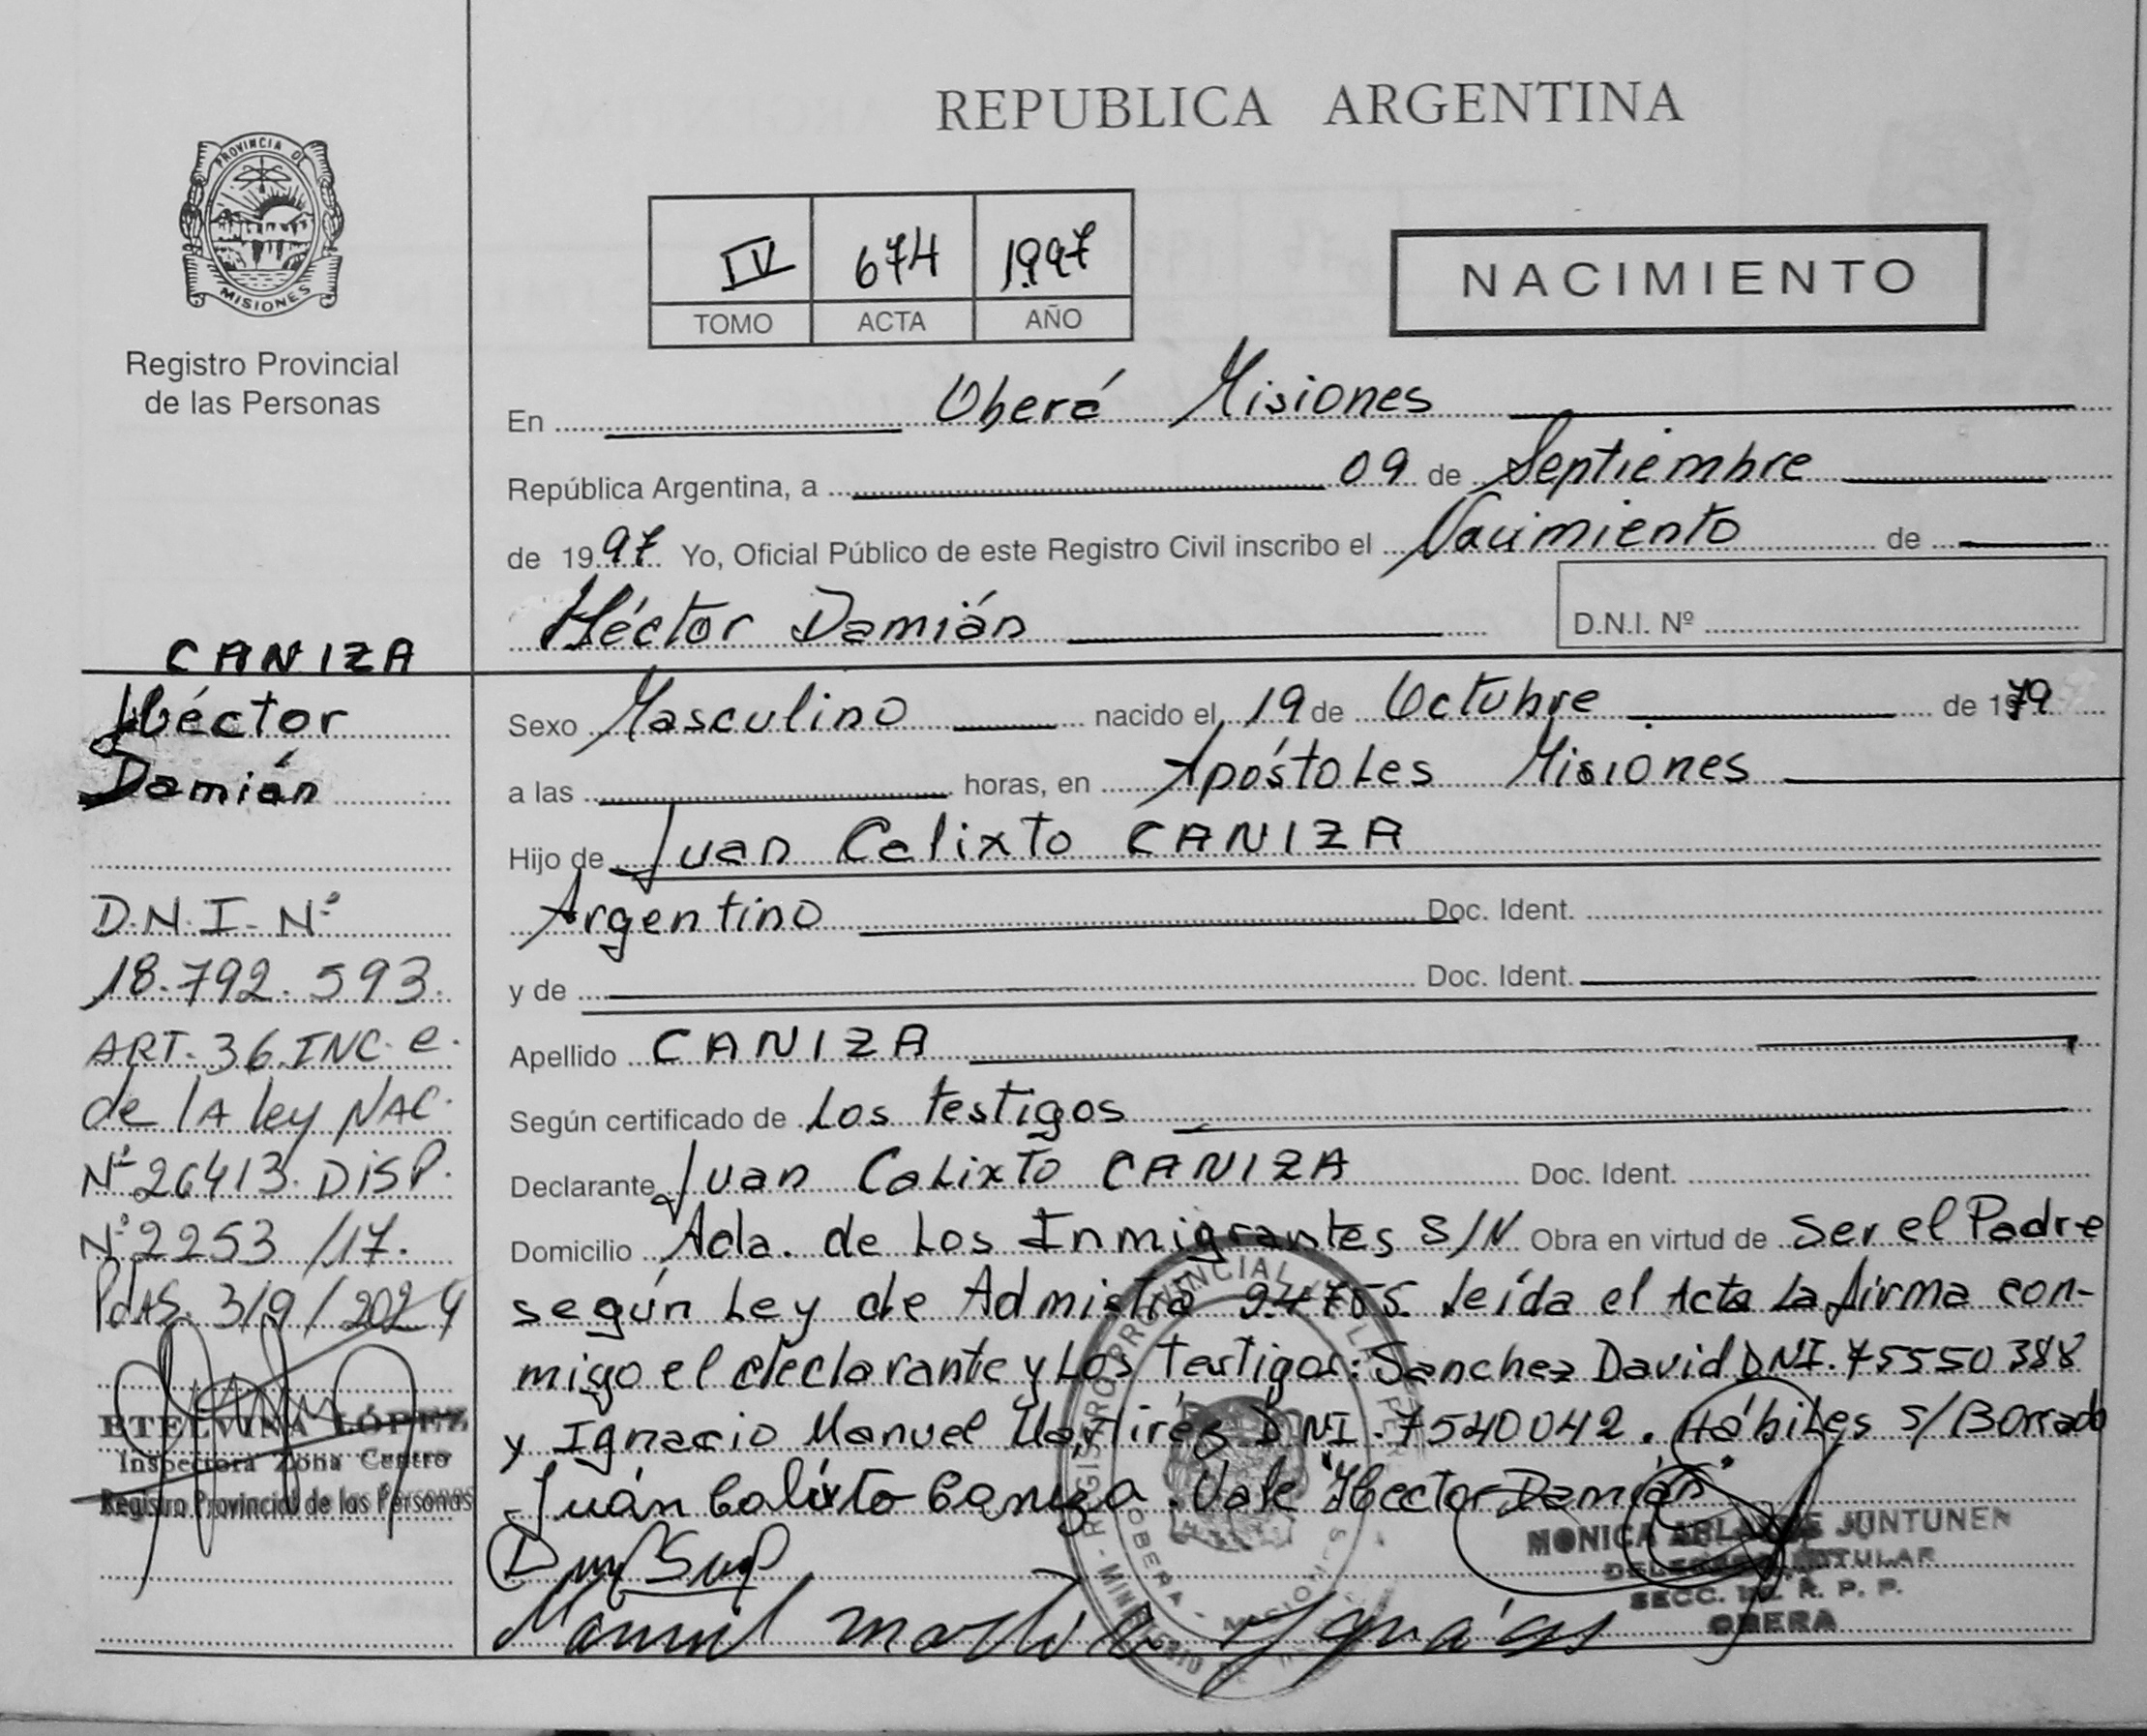 REPUBLICA ARGENTINA
PROVINCIA DE
MISIONES
Registro Provincial
de las Personas
IV 674 1997
TOMO ACTA AÑO
NACIMIENTO
En Oberá Misiones
República Argentina, a 09 de Septiembre
de 1997 Yo, Oficial Público de este Registro Civil inscribo el Nacimiento de
Héctor Damián D.N.I. Nº
CANIZA
Héctor
Damián
D.N.I. Nº
18.792.593.
ART. 36 INC. e.
de lA ley NAC.
Nº 26413. DISP.
Nº 2253/17.
Pdas. 3/9/2024
ETELVINA LÓPEZ
Inspectora Zona Centro
Registro Provincial de las Personas
Sexo Masculino nacido el 19 de Octubre de 1979
a las horas, en Apóstoles Misiones
Hijo de Juan Calixto CANIZA
Argentino Doc. Ident.
y de Doc. Ident.
Apellido CANIZA
Según certificado de Los testigos
Declarante Juan Calixto CANIZA Doc. Ident.
Domicilio Avda. de Los Inmigrantes S/N Obra en virtud de Ser el Padre
según Ley de 24755. leída el Acta La firma con-
migo el declarante y Los Testigos: Sanchez David DNI. 75550388
y Ignacio Manuel DNI. 7540042. Hábiles S/Borrado
Juán Calixto Caniza. Vale "Hector Damián"
Manuel
MONICA JUNTUNEN
TITULAR
SECC. R. P. P.
OBERA
REGISTRO PROVINCIAL DE LAS PER
OBERA - MISIONES